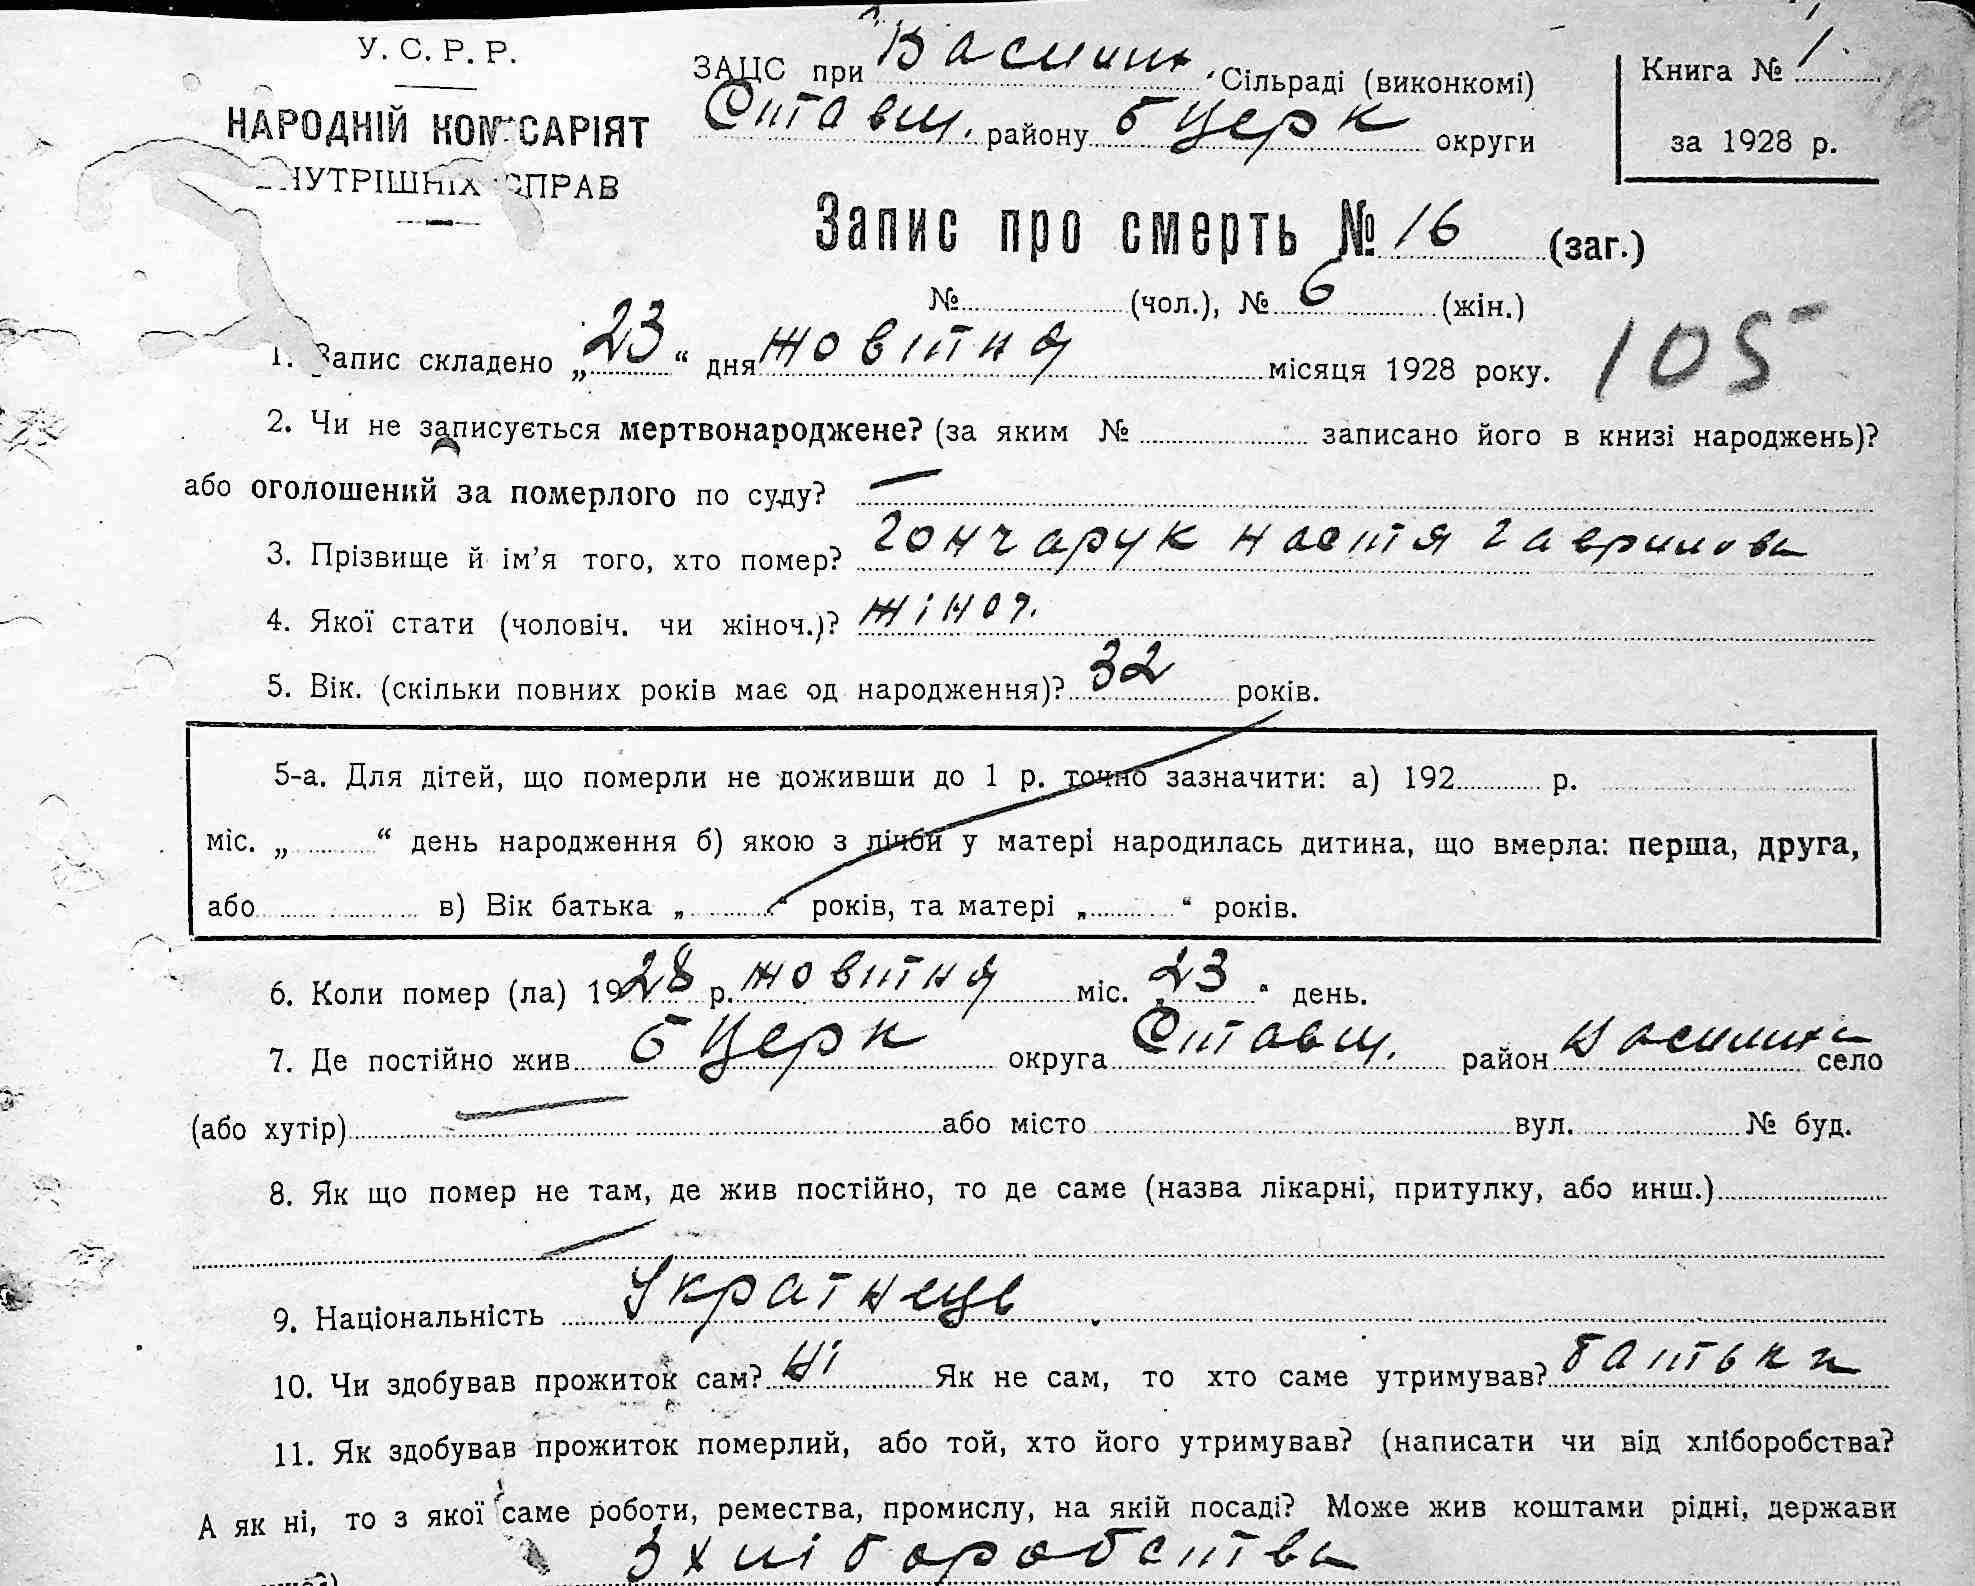 У. С. Р. Р.
НАРОДНІЙ КОМІСАРІЯТ
ВНУТРІШНІХ СПРАВ
ЗАЦС при Василих. Сільраді (виконкомі)
Ставищ. району б Церк округи
Книга № 1
за 1928 р.
Запис про смерть № 16 (заг.)
№ (чол.), № 6 (жін.)
105
1. Запис складено „23“ дня жовтня місяця 1928 року.
2. Чи не записується мертвонароджене? (за яким № записано його в книзі народжень)?
або оголошений за померлого по суду? —
3. Прізвище й ім’я того, хто помер? Гончарук Настя Гаврилова
4. Якої стати (чоловіч. чи жіноч.)? жіноч.
5. Вік. (скільки повних років має од народження)? 32 років.
5-а. Для дітей, що померли не доживши до 1 р. точно зазначити: а) 192 р.
міс. „ “ день народження б) якою з лічби у матері народилась дитина, що вмерла: перша, друга,
або в) Вік батька „ “ років, та матері „ “ років.
6. Коли помер (ла) 1928 р. жовтня міс. „23“ день.
7. Де постійно жив б Церк округа Ставищ. район село
(або хутір) — або місто вул. № буд.
8. Як що помер не там, де жив постійно, то де саме (назва лікарні, притулку, або инш.)
—
9. Національність Українець
10. Чи здобував прожиток сам? ні Як не сам, то хто саме утримував? батьки
11. Як здобував прожиток померлий, або той, хто його утримував? (написати чи від хліборобства?
А як ні, то з якої саме роботи, ремества, промислу, на якій посаді? Може жив коштами рідні, держави
З хліборобства